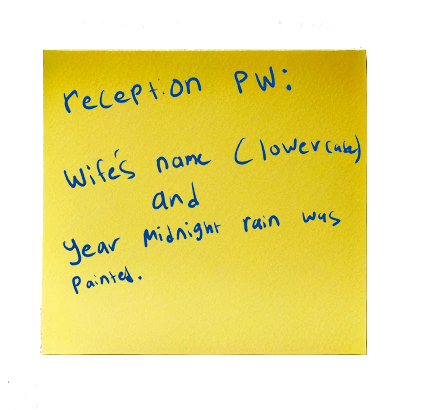 reception PW:
Wife's name (lowercase)
and
year Midnight rain was
Painted.